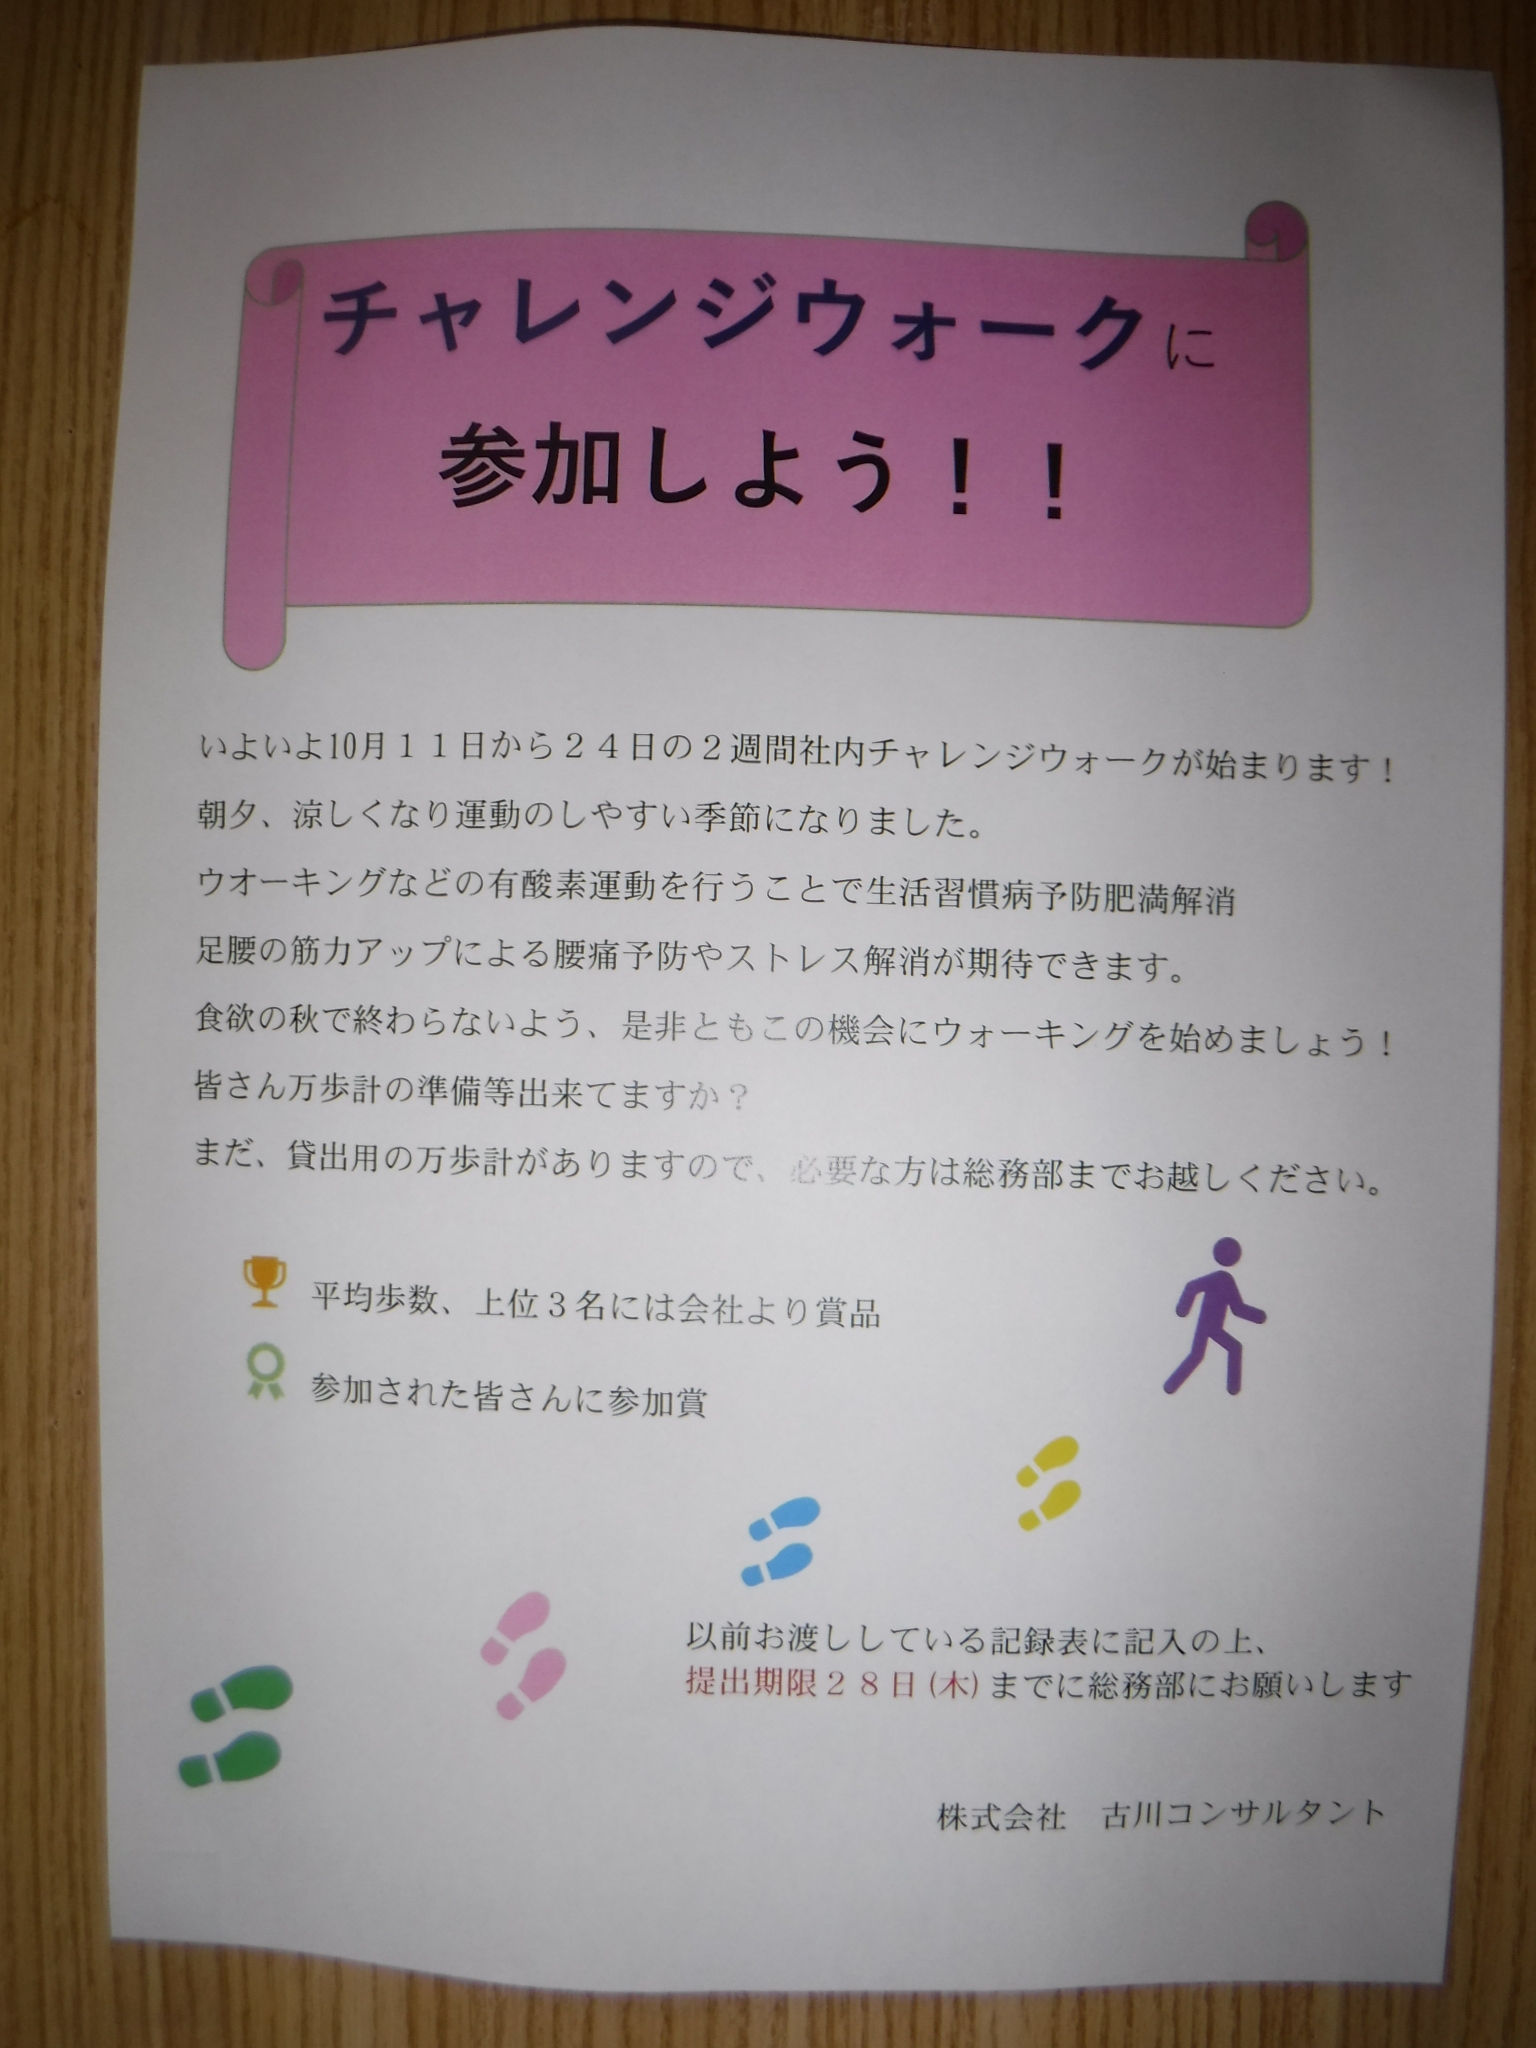 チャレンジウォークに
参加しよう！！
いよいよ10月１１日から２４日の２週間社内チャレンジウォークが始まります！
朝夕、涼しくなり運動のしやすい季節になりました。
ウオーキングなどの有酸素運動を行うことで生活習慣病予防肥満解消
足腰の筋力アップによる腰痛予防やストレス解消が期待できます。
食欲の秋で終わらないよう、是非ともこの機会にウォーキングを始めましょう！
皆さん万歩計の準備等出来てますか？
まだ、貸出用の万歩計がありますので、必要な方は総務部までお越しください。
平均歩数、上位３名には会社より賞品
参加された皆さんに参加賞
以前お渡ししている記録表に記入の上、
提出期限２８日(木)までに総務部にお願いします
株式会社　古川コンサルタント